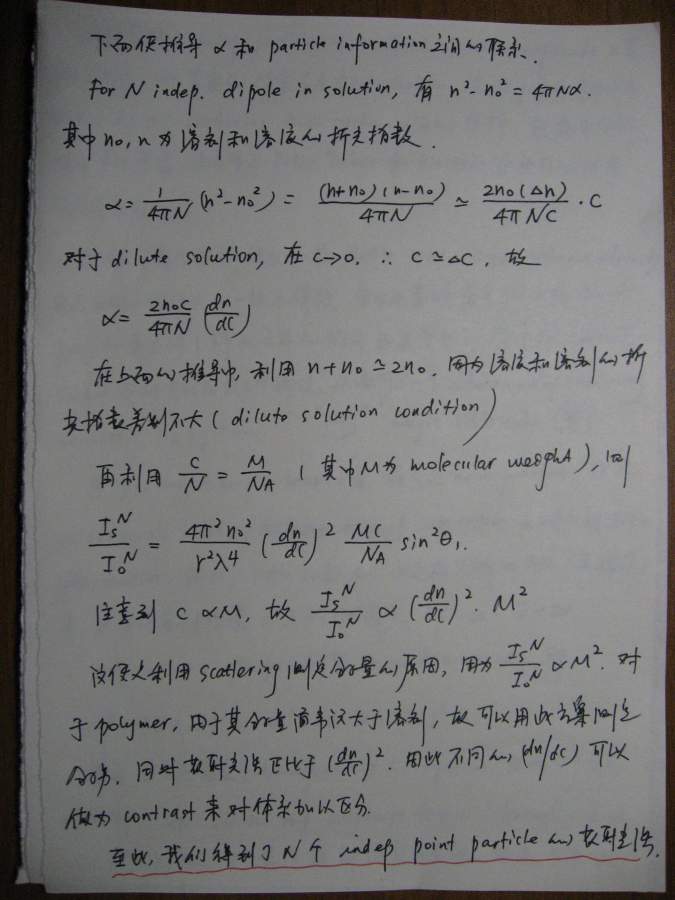 下面便推导 α 和 particle information 之间的联系.
For N indep. dipole in solution, 有 n² - n₀² = 4πNα.
其中 n₀, n 为溶剂和溶液的折光指数.
α = 1/(4πN) (n² - n₀²) = (n+n₀)(n-n₀)/(4πN) ≃ 2n₀(Δn)/(4πNC) · C
对于 dilute solution, 在 C→0. ∴ C ≃ ΔC. 故
α = 2n₀C/(4πN) (dn/dC)
在上面的推导中, 利用 n+n₀ ≃ 2n₀. 因为溶液和溶剂的折
光指数差别不大 (dilute solution condition)
再利用 C/N = M/NA (其中 M 为 molecular weight), 则
Iₛᴺ/I₀ᴺ = 4π²n₀²/(r²λ⁴) (dn/dC)² MC/NA sin²θ₁.
注意到 C ∝ M, 故 Iₛᴺ/I₀ᴺ ∝ (dn/dC)² · M²
这便是利用 scattering 测定分子量的原因, 因为 Iₛᴺ/I₀ᴺ ∝ M². 对
于 polymer, 由于其分子量通常远大于溶剂, 故可以用此方案测定
分子量. 同时散射光强正比于 (dn/dc)². 因此不同的 (dn/dc) 可以
做为 contrast 来对体系加以区分.
至此, 我们得到了 N 个 indep point particle 的散射光强.